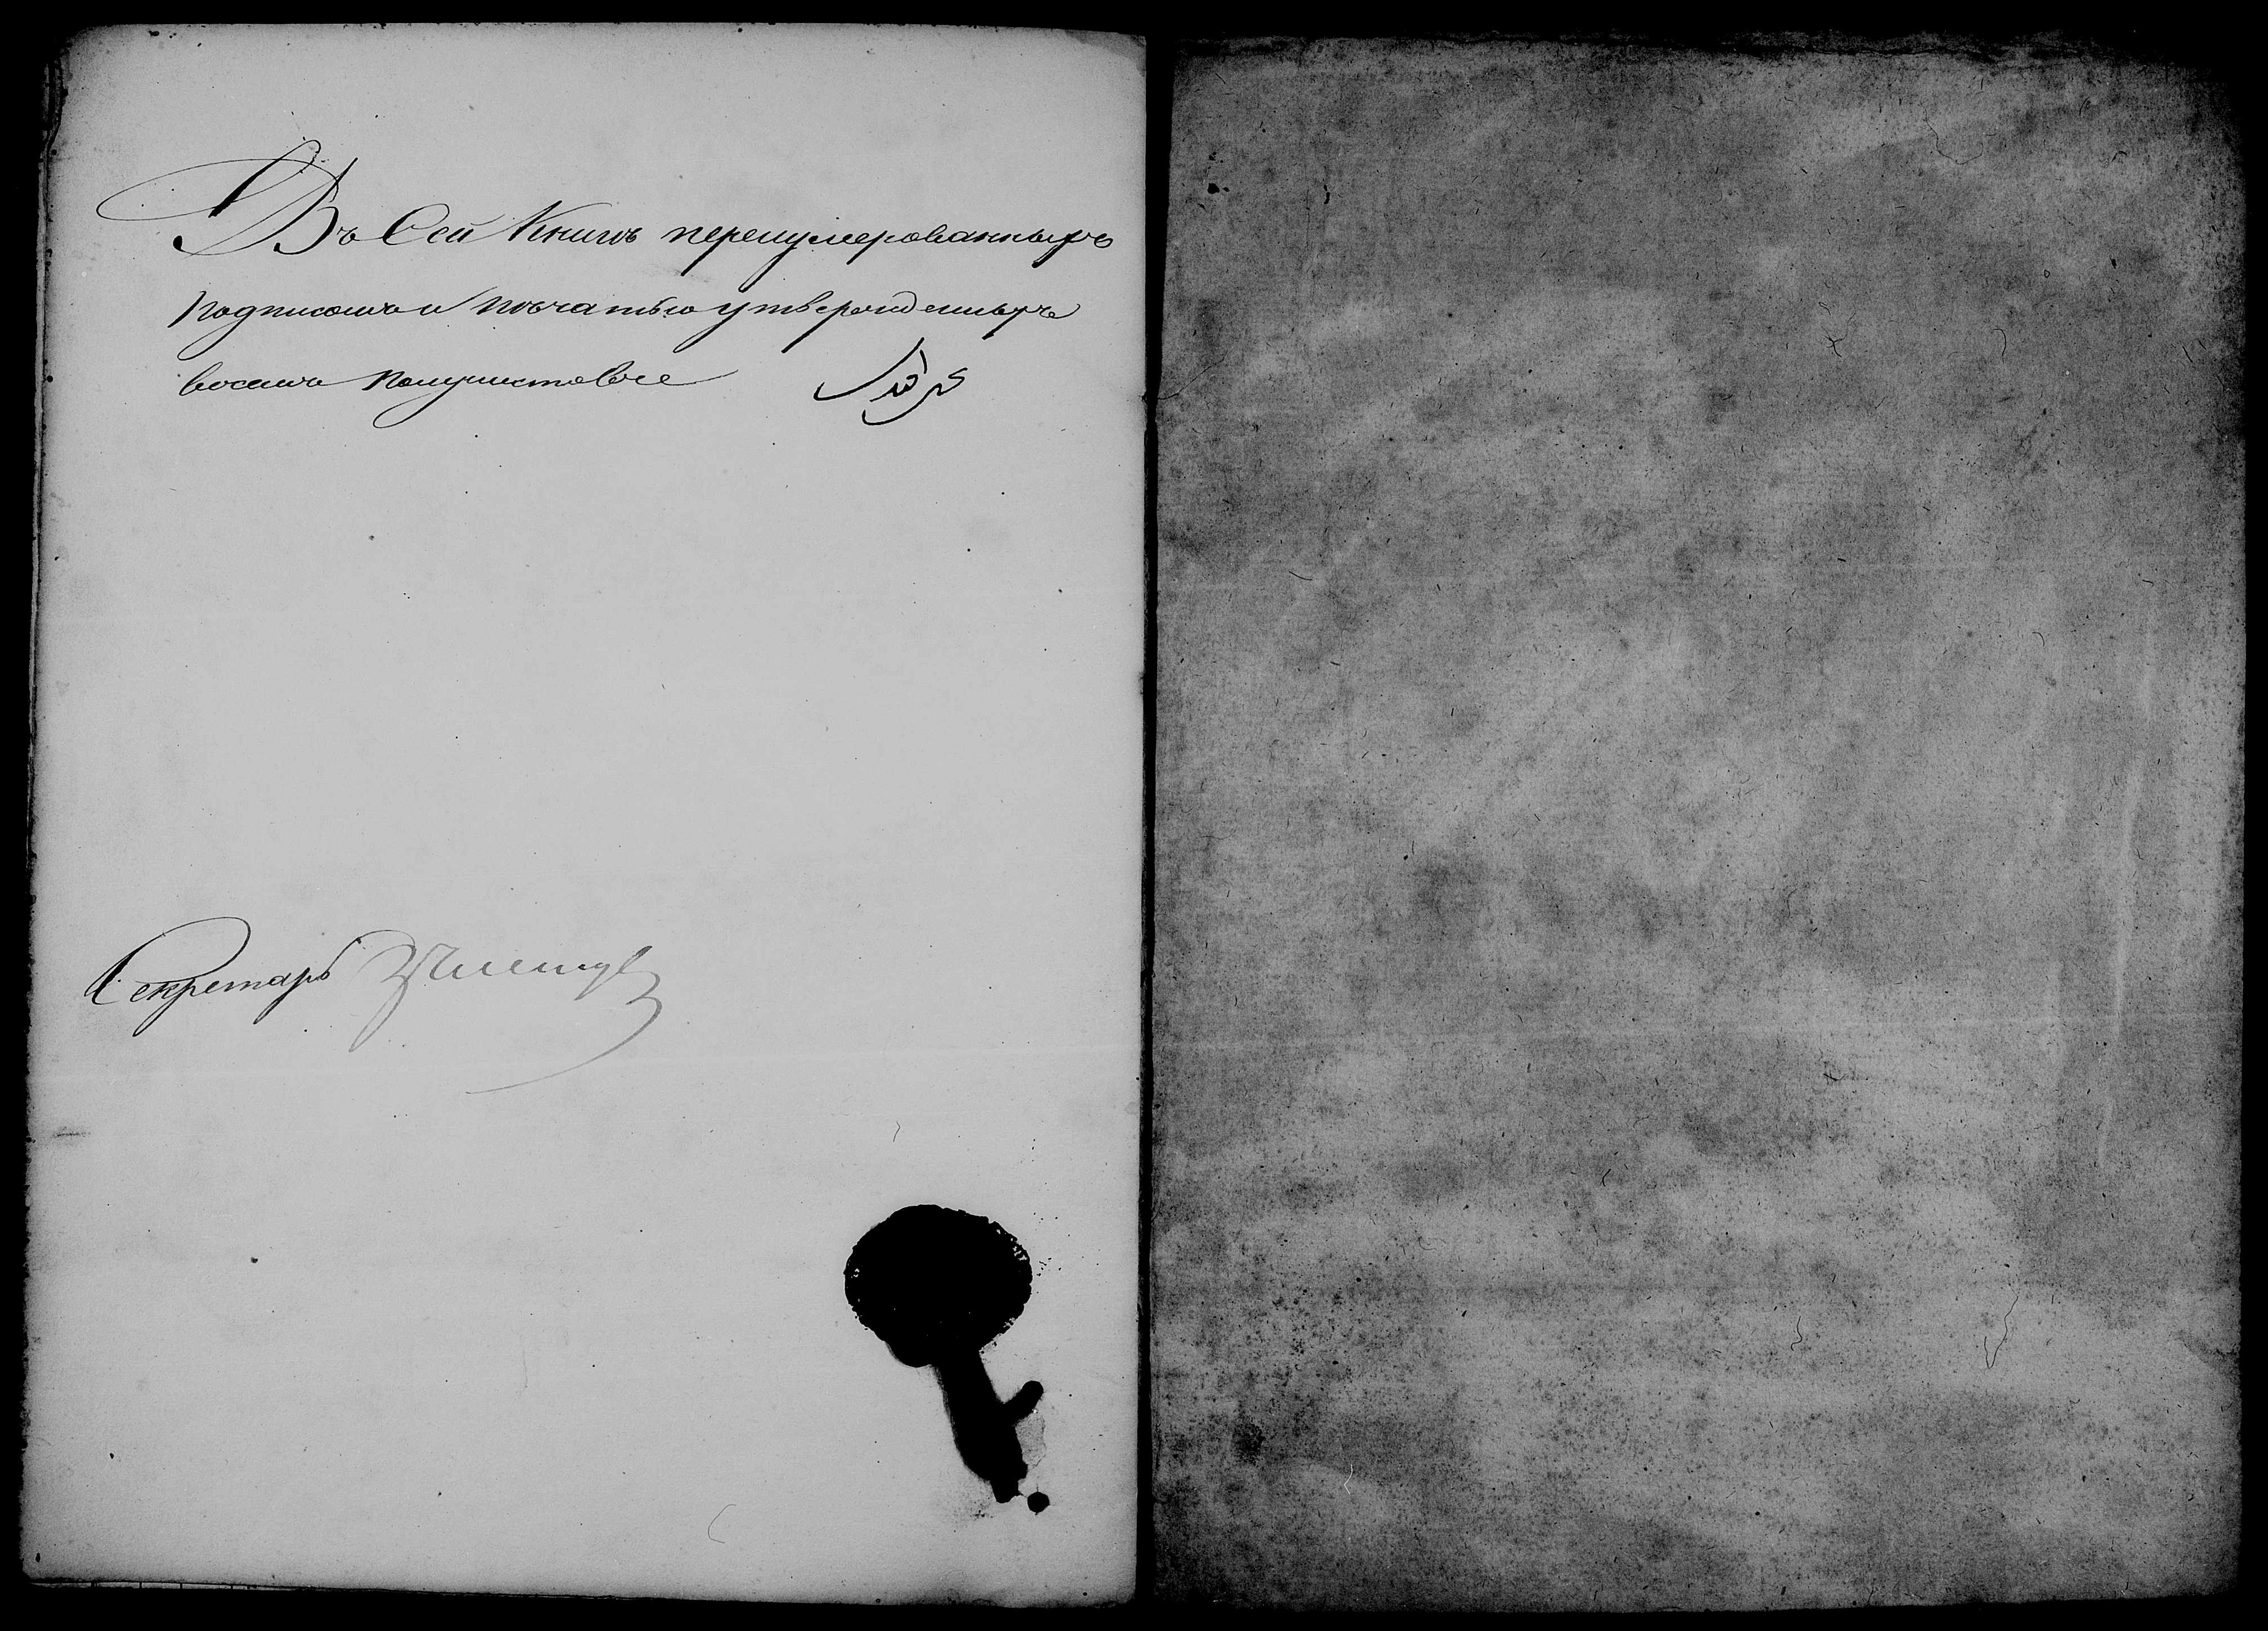 Въ Сей Книгѣ перенумерованныхъ
подписомъ и печатью утвержденныхъ
восемь полулистовъ
Секретарь